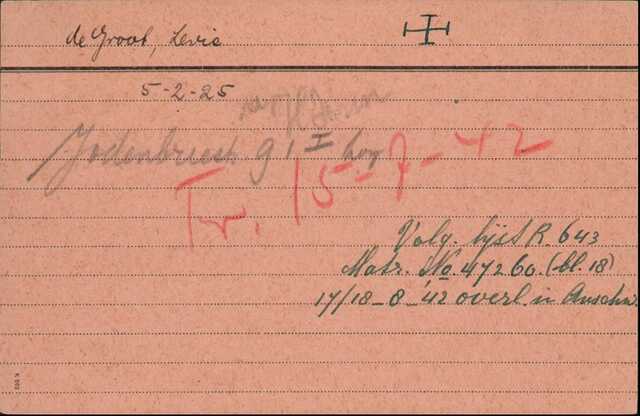 de Groot, Levie
5-2-25
Jodenbreestr. 91 I hog
Tr. 15-7-42
Volg. lijst R. 643
Matr. No. 47260. (bl. 18)
17/18-8-'42 overl. in Auschw.